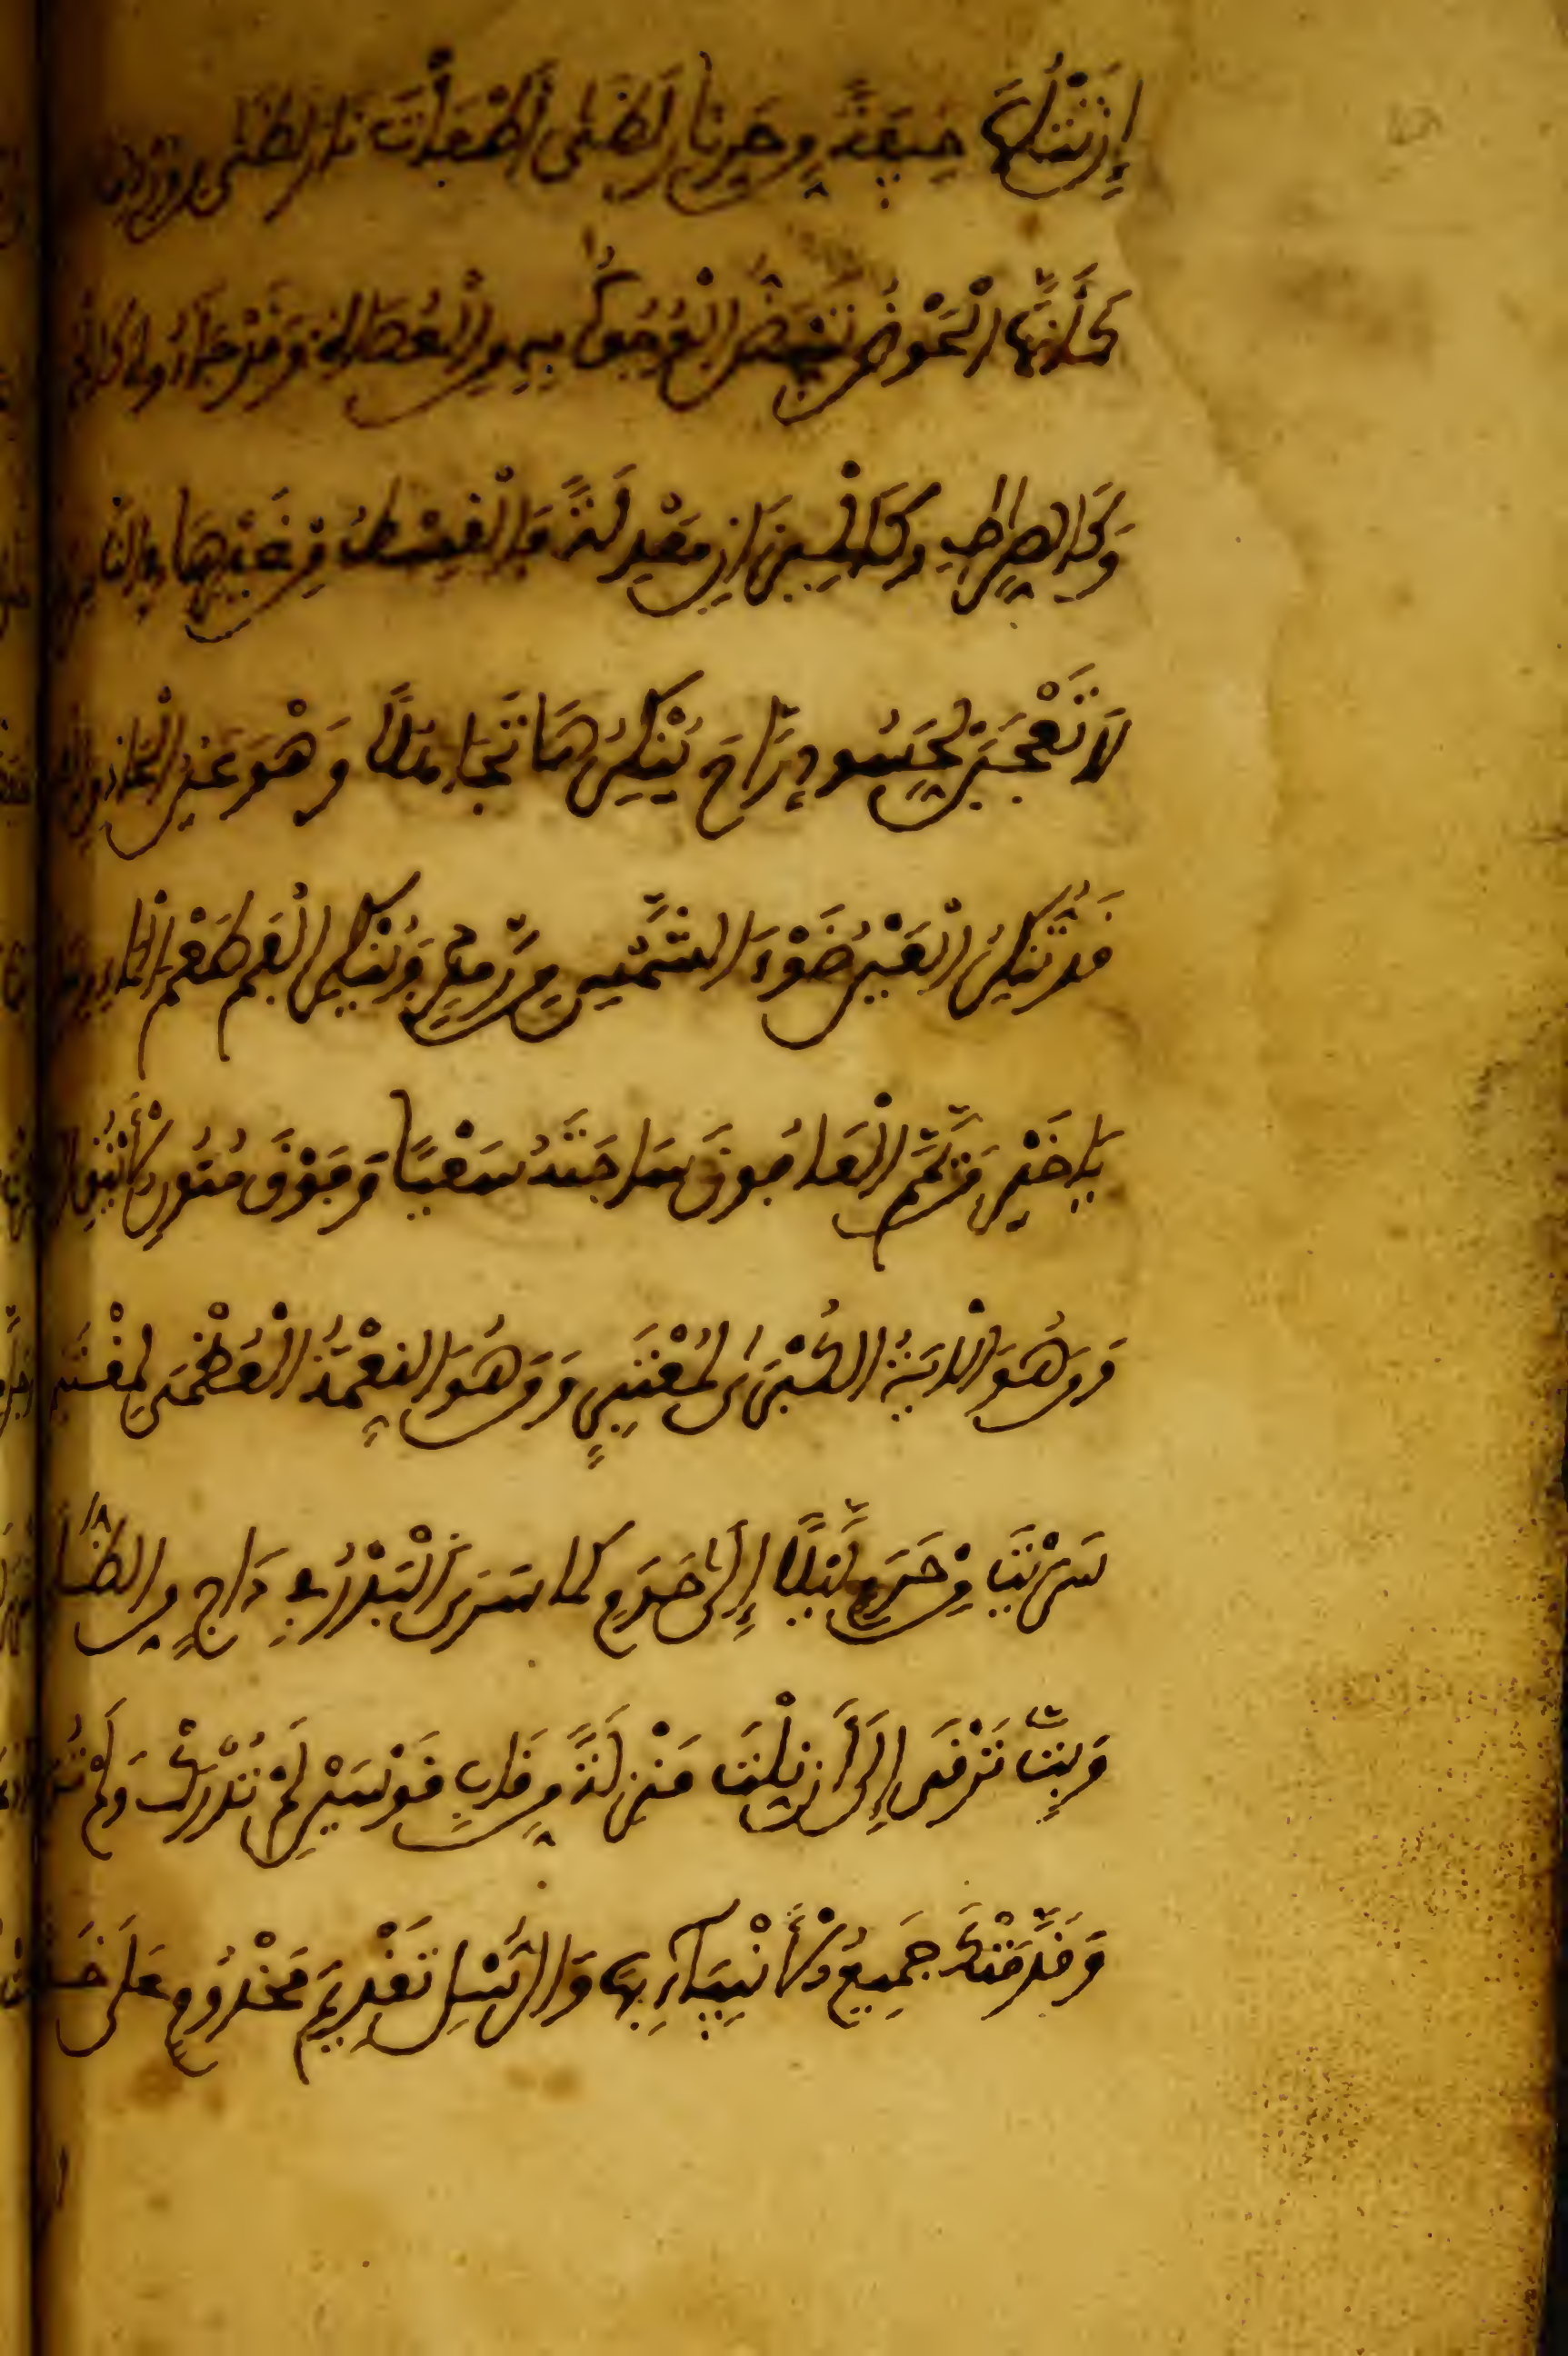 إِن تَتْلُهَا خِيفَةً مِن حَرِّ نَارِ لَظَى أَطْفَأْتَ نَارَ لَظَى مِن وِرْدِهَا
كَأَنَّهَا الْحَوْضُ تَبْيَضُّ الْوُجُوهُ بِهِ مِنَ الْعُصَاةِ وَقَدْ جَاءُوهُ كَالْحُمَمِ
وَكَالصِّرَاطِ وَكَالْمِيزَانِ مَعْدِلَةً فَالْقِسْطُ مِن غَيْرِهَا فِي النَّاسِ
لَا تَعْجَبَنْ لِحَسُودٍ رَاحَ يُنْكِرُهَا تَجَاهُلًا وَهْوَ عَيْنُ الْحَاذِقِ
قَدْ تُنْكِرُ الْعَيْنُ ضَوْءَ الشَّمْسِ مِن رَمَدٍ وَيُنْكِرُ الْفَمُ طَعْمَ الْمَاءِ مِن
يَا خَيْرَ مَن يَمَّمَ الْعَافُونَ سَاحَتَهُ سَعْيًا وَفَوْقَ مُتُونِ الْأَيْنُقِ
وَمَن هُوَ الْآيَةُ الْكُبْرَى لِمُعْتَبِرٍ وَمَن هُوَ النِّعْمَةُ الْعُظْمَى لِمُغْتَنِمِ
سَرَيْتَ مِن حَرَمٍ لَيْلًا إِلَى حَرَمٍ كَمَا سَرَى الْبَدْرُ فِي دَاجٍ مِنَ الظُّلَمِ
وَبِتَّ تَرْقَى إِلَى أَن نِلْتَ مَنْزِلَةً مِن قَابِ قَوْسَيْنِ لَمْ تُدْرَكْ وَلَمْ تُرَمِ
وَقَدَّمَتْكَ جَمِيعُ الْأَنْبِيَاءِ بِهَا وَالرُّسْلِ تَقْدِيمَ مَخْدُومٍ عَلَى خَدَمِ